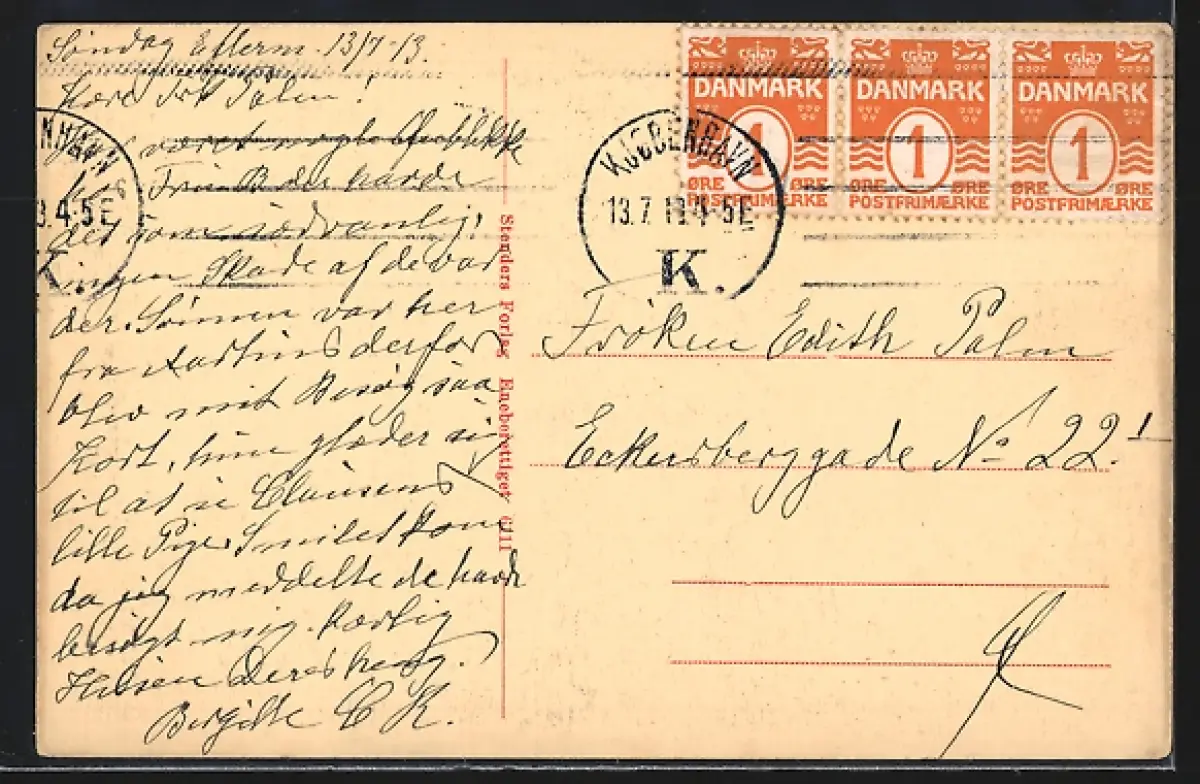 Søndag Efterm. 13/7-13.
Kære Frk Palm!
været nogle Øieblikke
hos Fru B der havde
det som sædvanlig,
ingen Skade af de var
der. Sønnen var her
fra Aarhus derfor
blev mit Besøg saa
Kort, hun glæder sig
til at se Clausens
lille Pige. Smilet kom
da jeg meddelte de havde
besøgt mig. Kærlig
Hilsen Deres heng.
Birgitte C K.
Stenders Forlag Eneberettiget 6711
KJØBENHAVN
13.7.13.4-5E
K.
DANMARK
1
ØRE ØRE
POSTFRIMÆRKE
DANMARK
1
ØRE ØRE
POSTFRIMÆRKE
DANMARK
1
ØRE ØRE
POSTFRIMÆRKE
Frøken Edith Palm
Eckersberggade No 22. 1
Ø